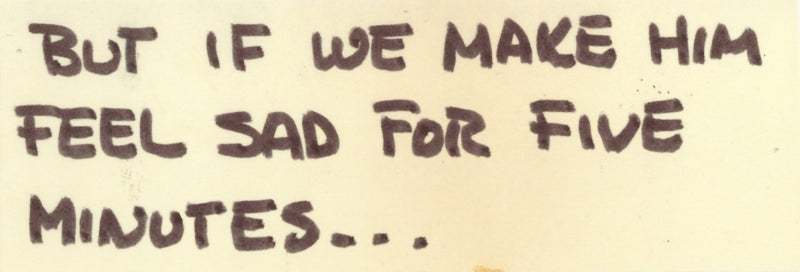 BUT IF WE MAKE HIM
FEEL SAD FOR FIVE
MINUTES...